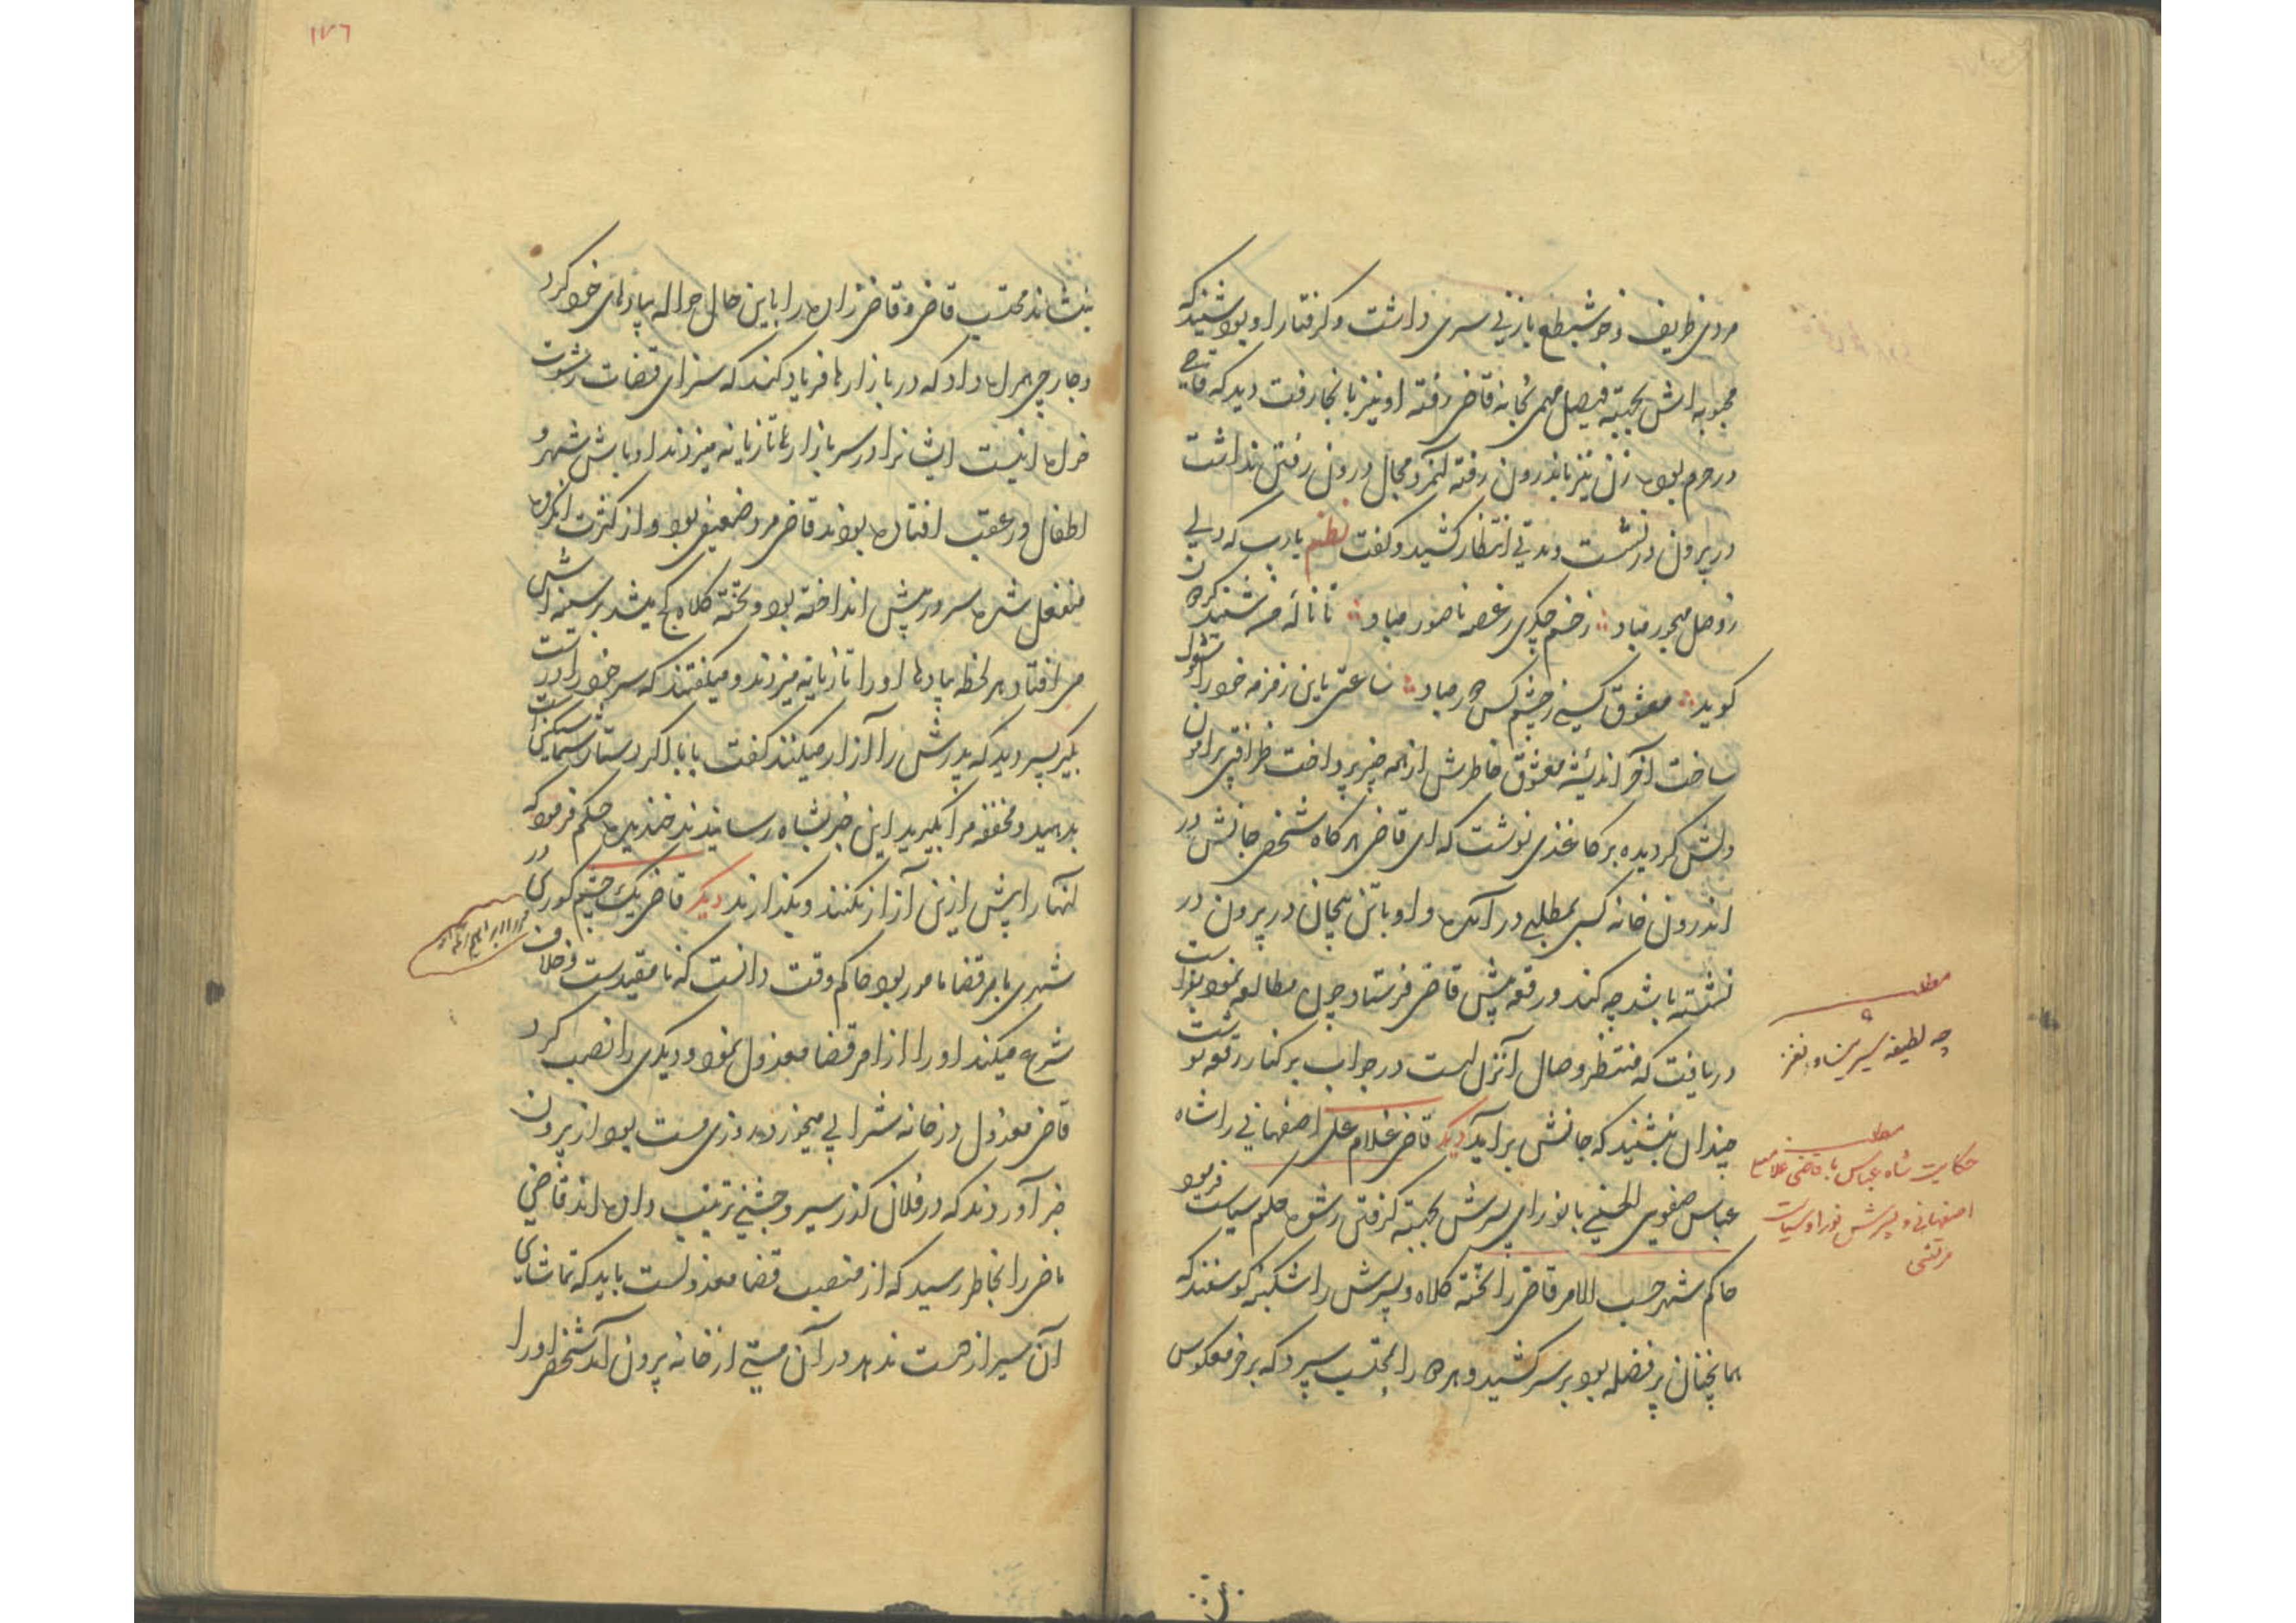 مردی ظریف و خوشطبع بازنی سری داشت و گرفتار او بود شنید که
محبوبه اش بجهته فیصل مهمی بخانه قاضی رفته او نیز بانجا رفت دید که قاضی
در حرم بوده زن نیز باندرون رفته آنمرد مجال درون رفتن نداشت
در بیرون در نشست و مدتی انتظار کشید و گفت نظم یارب که دلی
ز وصل مهجور مباد زخم جگری ز غصه ناصور مباد تا ناله من شنید کره
گوید معشوق کسی ز چشم کس دور مباد ساعتی باین زمزمه خود را مشغول
ساخت آخر اندیشه معشوق خاطرش از همه چیز پرداخت ظرافتی پیرامون
دلش گردیده بر کاغذی نوشت که ای قاضی هرگاه شخصی جانش در
اندرون خانه کسی بمطلبی در آمده و او باتن بیجان در بیرون در
نشسته باشد چه کند و رقعه پیش قاضی فرستاد چون مطالعه نمود بفراست
دریافت که منتظر وصال آنزن است در جواب بر کنار رقعه نوشت
چندان بنشیند که جانش برآید دیگر قاضی غلام علی اصفهانی را شاه
عباس صفوی الحسینی با نورای پسرش بجهته گرفتن رشوه حکم سیاست فرمود
حاکم شهر حسب الامر قاضی را تخته کلاه و پسرش را شکنبه گوسفند که
همانچنان پر فضله بود بر سر کشید و هر دو را بمحتسب سپرد که بر خر معکوس
مطلب
چه لطیفه شیرین و نغز
مطلب
حکایت شاه عباس با قاضی غلامعلی
اصفهانی و پسرش نورا و سیاست
مرتشی
۱۷۶
بنشاند محتسب قاضی و قاضی زاده را باین حال حواله پیادهای خود کرد
و جارچی همراه داد که در بازارها فریاد کند که سزای قضات رشوت
خوار اینست ایشانرا در سر بازارها تازیانه میزدند اوباش شهر و
اطفال در عقب افتاده بودند قاضی مرد ضعیفی بود و از کثرت اندوه
منفعل شده سر در پیش انداخته بود و تخته کلاه کج میشد بر سینه اش
می افتاد هر لحظه پیادها او را تازیانه میزدند و میگفتند که سر خود را راست
بگیر پسر دید که پدرش را آزار میکنند گفت بابا اگر دستار شما سنگین است
بدهید و مخففه مرا بگیرید این خبر بشاه رسانیدند خندیده حکم فرمود که
آنها را پیش ازین آزار نکنند و بگذارند دیگر قاضی یک چشم کوری در
شهری بامر قضا مامور بود حاکم وقت دانست که نا مقیدست و خلاف
شرع میکند او را از امر قضا معزول نمود و دیگری را نصب کرد
قاضی معزول در خانه شرابی میخورد روزی مست بود از بیرون
خبر آوردند که در فلان گذر سیر و جشنی ترتیب داده اند قاضی
ماضی را بخاطر رسید که از منصب قضا معزولست باید که تماشای
آن سیر از دست ندهد در آن مستی از خانه بیرون آمد شخصی او را